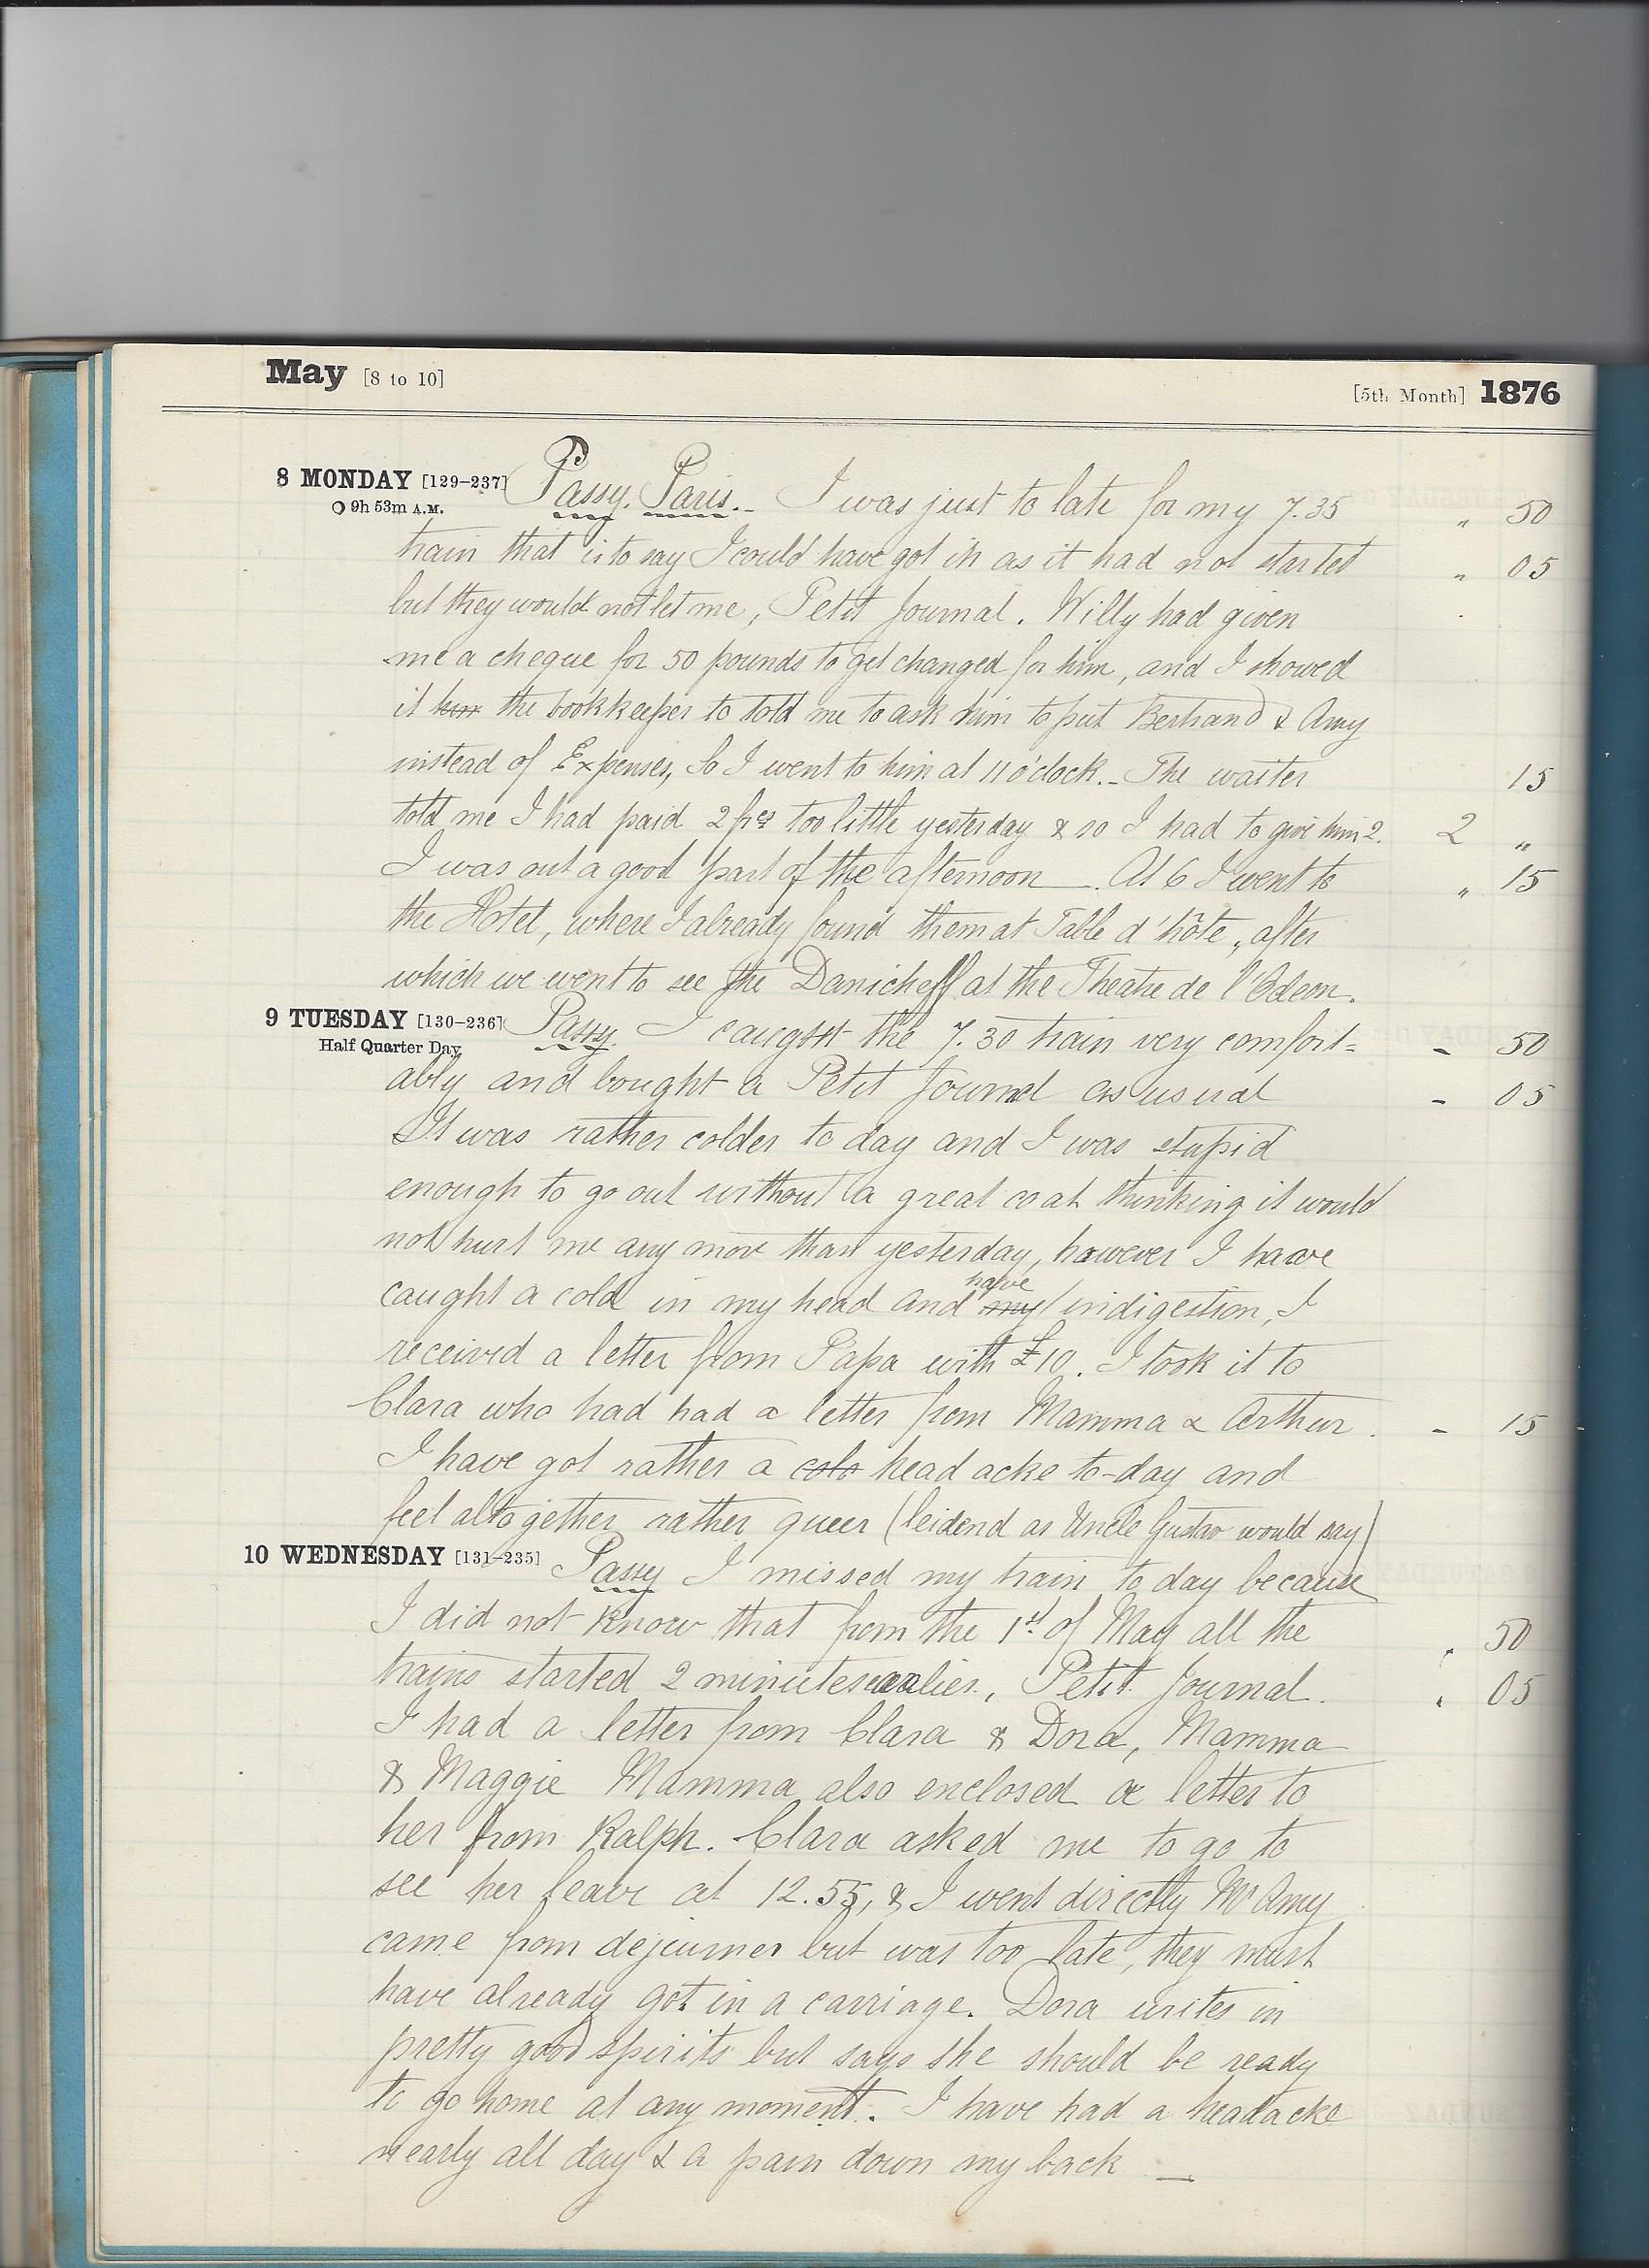 May [8 to 10] [5th Month] 1876
8 MONDAY [129-237] Passy. Paris. - I was just to late for my 7.35 " 50
○ 9h 53m A.M.
train that is to say I could have got in as it had not started " 05
but they would not let me, Petit Journal. Willy had given
me a cheque for 50 pounds to get changed for him, and I showed
it him the bookkeeper to told me to ask him to put Bertrand & Amy
instead of Expenses, So I went to him at 11 o'clock. - The waiter 15
told me I had paid 2 frcs too little yesterday & so I had to give him 2. 2 "
I was out a good part of the afternoon. At 6 I went to " 15
the Hotel, where I already found them at Table d'hôte, after
which we went to see the Danicheff at the Theatre de l'Odeon.
9 TUESDAY [130-236] Passy. I caught the 7.30 train very comfort= - 50
Half Quarter Day
ably and bought a Petit Journal as usual - 05
It was rather colder to day and I was stupid
enough to go out without a great coat thinking it would
not hurt me any more than yesterday, however I have
caught a cold in my head and my have indigestion, I
received a letter from Papa with £10. I took it to
Clara who had had a letter from Mamma & Arthur. - 15
I have got rather a cold head ache to-day and
feel altogether rather queer (leidend as Uncle Gustav would say)
10 WEDNESDAY [131-235] Passy I missed my train to day because
I did not know that from the 1st of May all the " 50
trains started 2 minutes earlier., Petit Journal. " 05
I had a letter from Clara & Dora, Mamma
& Maggie Mamma also enclosed a letter to
her from Ralph. Clara asked me to go to
see her leave at 12.55, & I went directly Mr Amy
came from dejeuner but was too late, they must
have already got in a carriage. Dora writes in
pretty good spirits but says she should be ready
to go home at any moment. I have had a headache
nearly all day & a pain down my back —